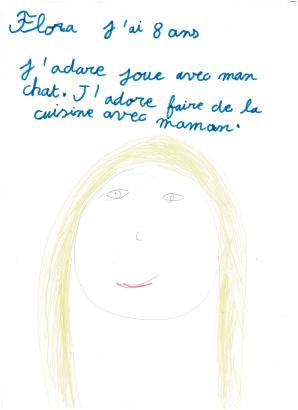 Flora J'ai 8 ans
J'adore joue avec mon
chat. J'adore faire de la
cuisine avec maman.